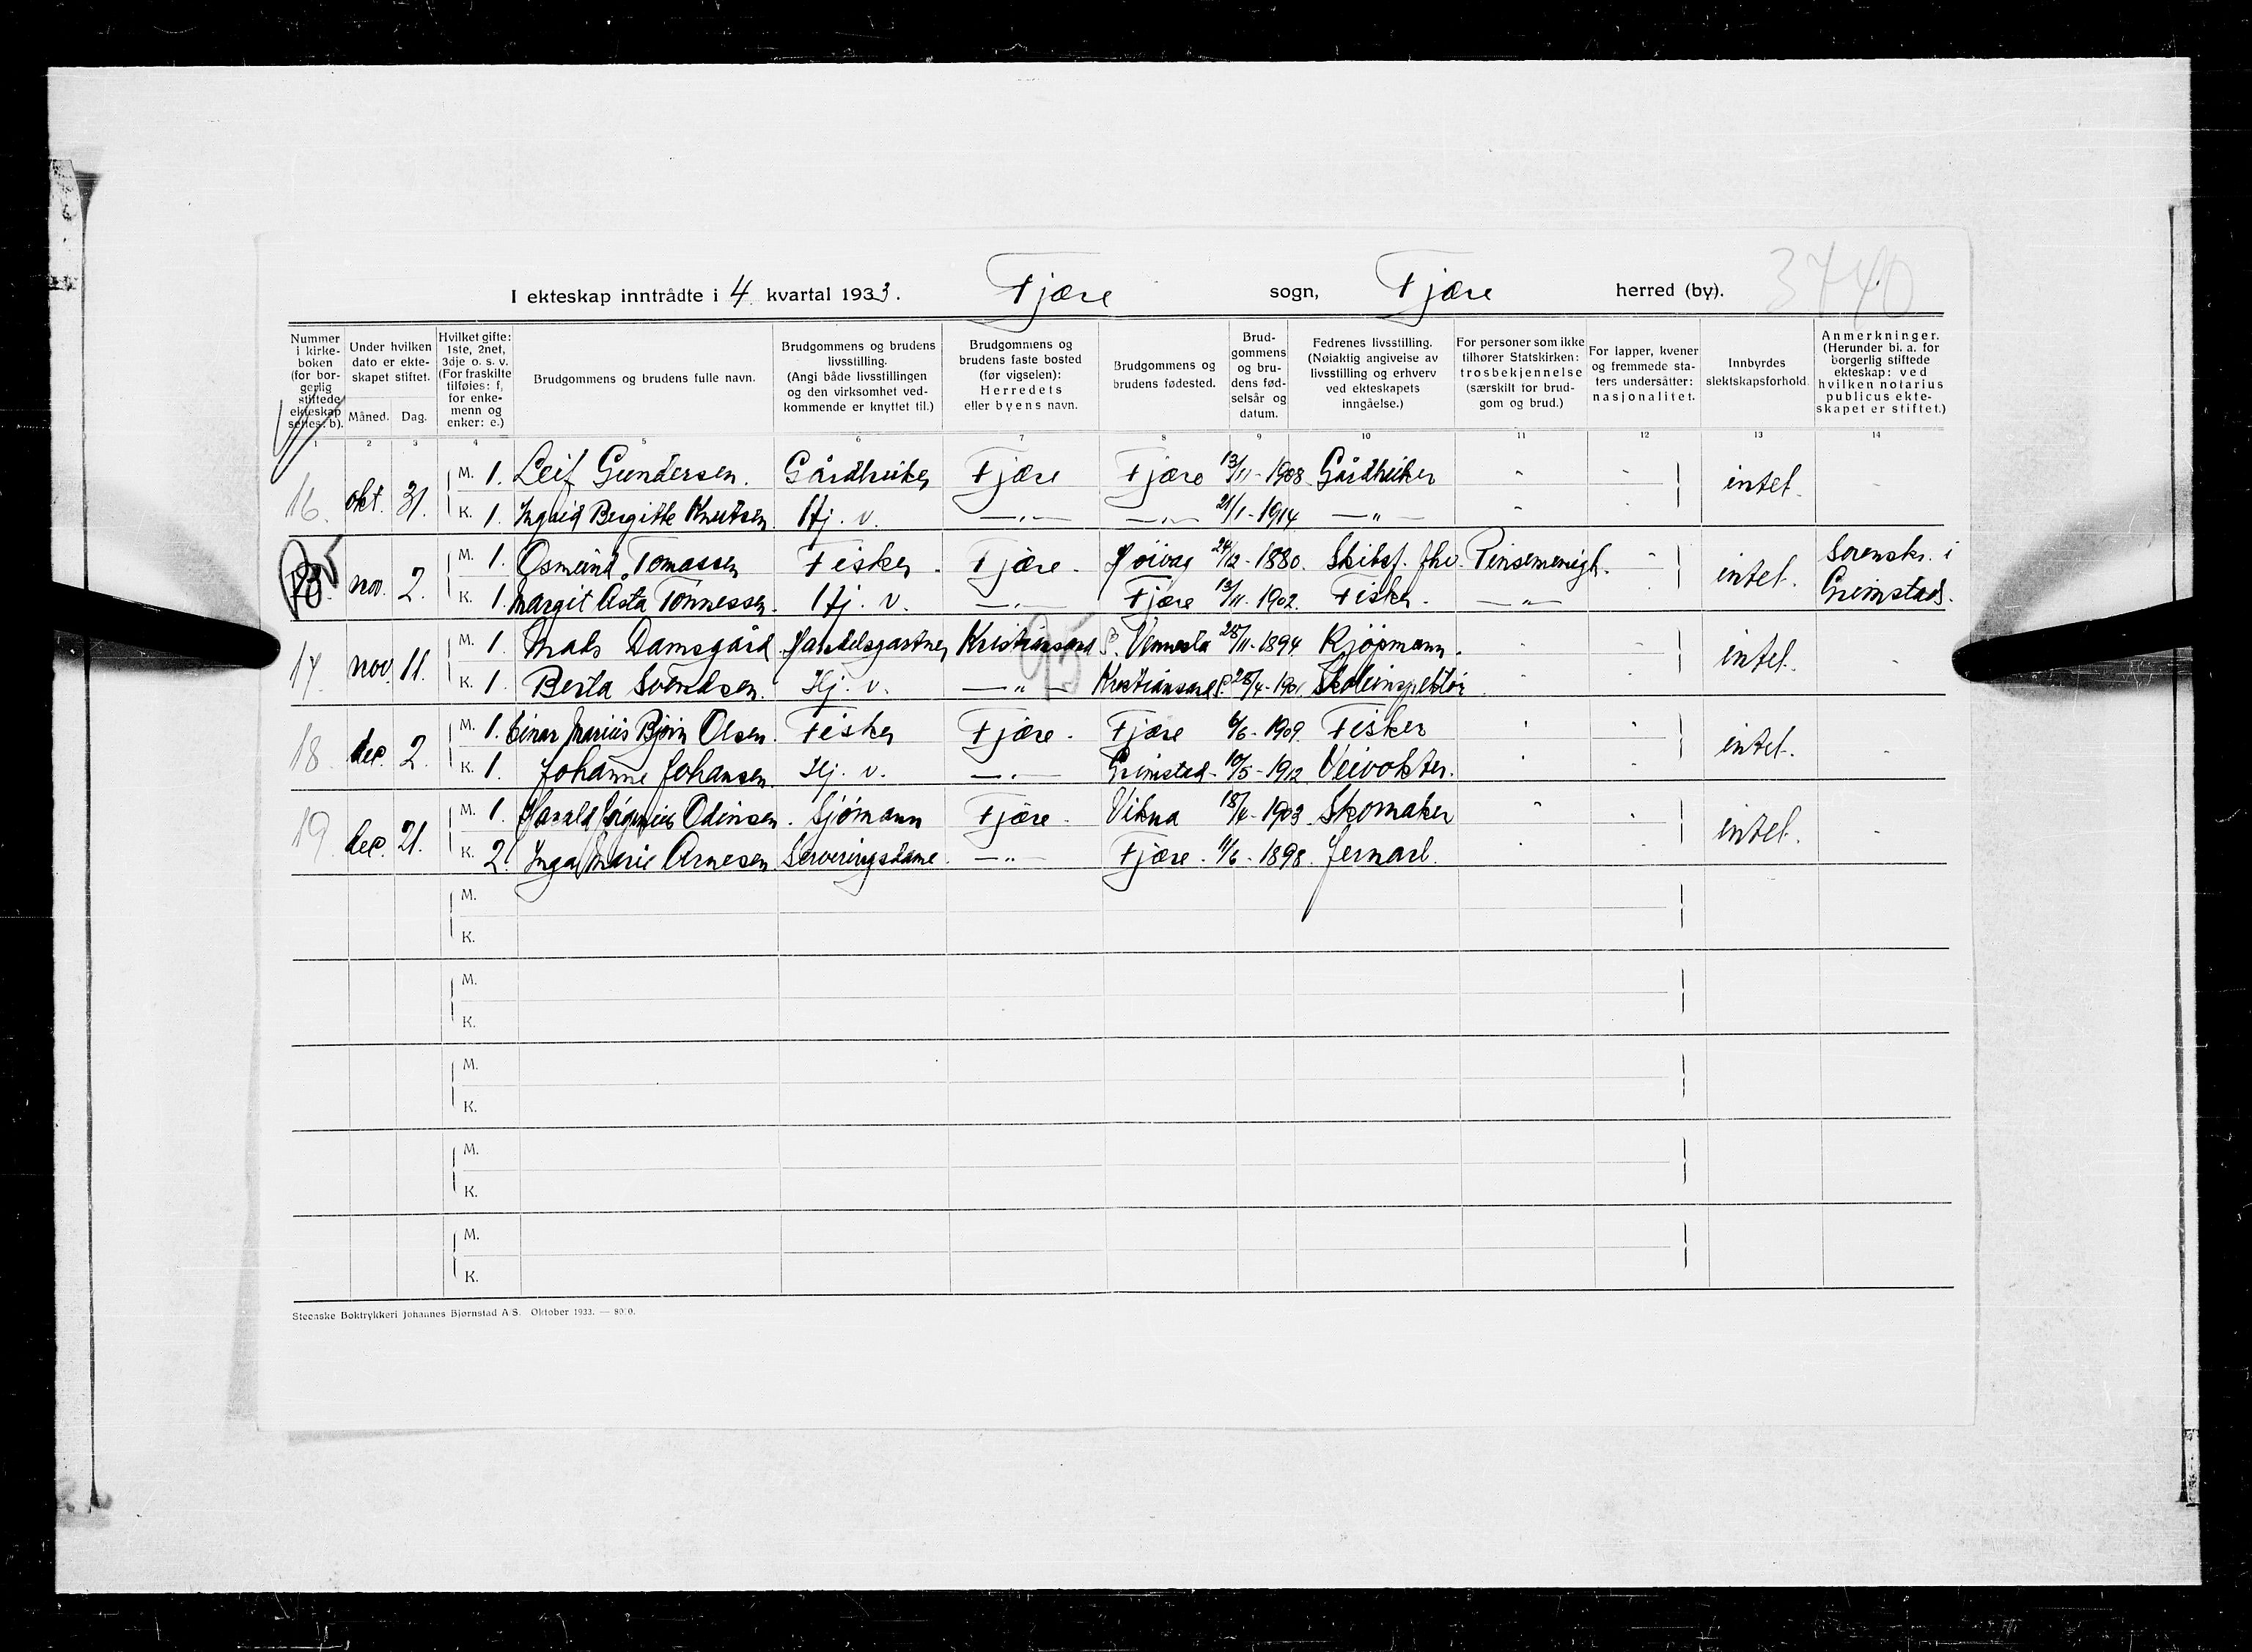 3740
I ekteskap inntrådte i 4. kvartal 1933. Fjære sogn, Fjære herred (by).
Nummer i kirke-boken (for bor-gerlig stiftede ekteskap settes: b).
Under hvilken dato er ekte-skapet stiftet.
Måned. Dag.
Hvilket gifte: 1ste, 2net, 3dje o. s. v. (For fraskilte tilføies: f, for enke-menn og enker: e.)
Brudgommens og brudens fulle navn.
Brudgommens og brudens livsstilling. (Angi både livsstillingen og den virksomhet ved-kommende er knyttet til.)
Brudgommens og brudens faste bosted (før vigselen): Herredets eller byens navn.
Brudgommens og brudens fødested.
Brud-gommens og bru-dens fød-selsår og datum.
Fedrenes livsstilling. (Nøiaktig angivelse av livsstilling og erhverv ved ekteskapets inngåelse.)
For personer som ikke tilhører Statskirken: trosbekjennelse (særskilt for brud-gom og brud.)
For lapper, kvener og fremmede sta-ters undersåtter: nasjonalitet.
Innbyrdes slektskapsforhold.
Anmerkninger. (Herunder bl. a. for borgerlig stiftede ekteskap: ved hvilken notarius publicus ekte-skapet er stiftet.)
1 2 3 4 5 6 7 8 9 10 11 12 13 14
16. okt. 31. M. 1. Leif Gundersen. Gårdbruker Fjære Fjære 13/11-1908. Gårdbruker " " intet. -
K. 1. Ingrid Bergitte Knutsen. Hj. v. —"— —"— 21/1-1914 —"— "
nov. 2. M. 1. Osmund Tomassen Fisker. Fjære. Høivåg 24/12-1880. Pinsemenigh. - intet. Sorenskr. i
K. 1. Margit Asta Tønnessen. Hj. v. —"— Fjære 13/11-1902. Fisker. —"— Grimstad.
17. nov. 11. M. 1. Mads Damsgård Handelsgartner Kristiansand S. Vennesla 28/11-1894 Kjöpmann. intet. -
K. 1. Berta Svendsen. Hj. v. —"— Kristiansand S. 28/4-1901. Skoleinspektör
18. dec. 2. M. 1. Einar Marius Bjørn Olsen. Fisker Fjære. Fjære 6/6-1909. Fisker " " intet. -
K. 1. Johanne Johansen. Hj. v. —"— Grimstad. 10/5-1912 Veivokter.
19. dec. 21. M. 1. Harald Odinsen. Sjømann Fjære. Vikna 18/4-1903 Skomaker " intet. -
K. 2. Inga Marie Arnesen. Serveringsdame. —"— Fjære. 11/6-1898. Jernarb.
M.
K.
M.
K.
M.
K.
M.
K.
M.
K.
Steenske Boktrykkeri Johannes Bjørnstad A/S. Oktober 1933. — 8000.